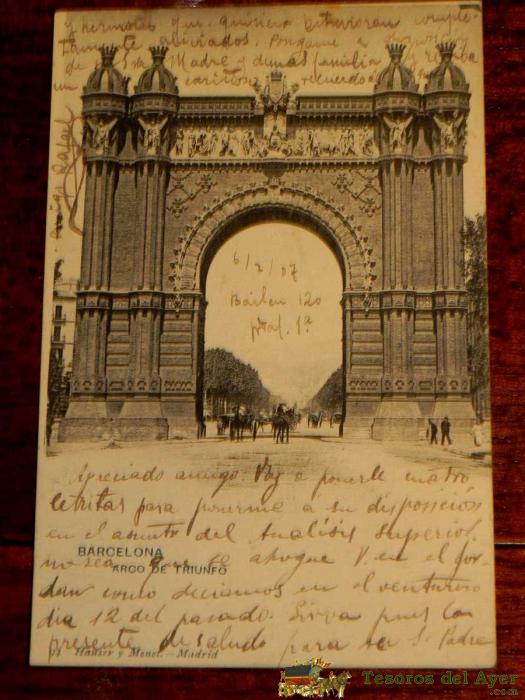 y hermanos que quisiera estuvieran comple-
tamente aliviados. Pongame a
de su Sra Madre y demas familia y reciba
un cariñoso recuerdo de su
amigo Rafael
6/2/07
Bailen 120
pral. 1ª
Apreciado amigo. Voy a ponerle cuatro
letritas para ponerme a su disposición
en el asunto del Análisis Superior,
no sea que se ahogue V. en el Jor-
dan como decíamos en el venturoso
dia 12 del pasado. Sirva pues la
presente de saludo para su S. Padre
BARCELONA
ARCO DE TRIUNFO
Hauser y Menet.-Madrid
Tesoros del Ayer
.com